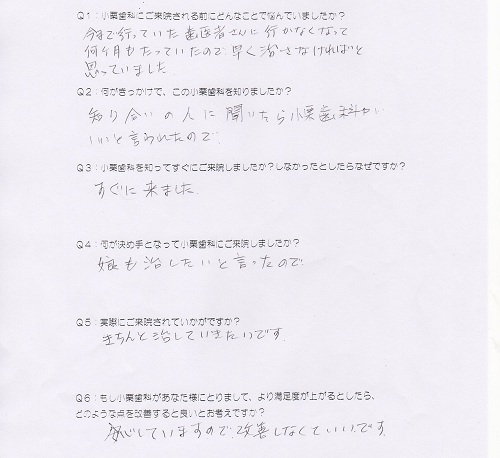 Q1：小栗歯科にご来院される前にどんなことで悩んでいましたか？
今まで行っていた歯医者さんに行かなくなって
何ヶ月もたっていたので早く治さなければと
思っていました。
Q2：何がきっかけで、この小栗歯科を知りましたか？
知り合いの人に聞いたら小栗歯科が
いいと言われたので。
Q3：小栗歯科を知ってすぐにご来院しましたか？しなかったとしたらなぜですか？
すぐに来ました。
Q4：何が決め手となって小栗歯科にご来院しましたか？
娘も治したいと言ったので
Q5：実際にご来院されていかがですか？
きちんと治していきたいです。
Q6：もし小栗歯科があなた様にとりまして、より満足度が上がるとしたら、
どのような点を改善すると良いとお考えですか？
していますので、改善しなくていいです。